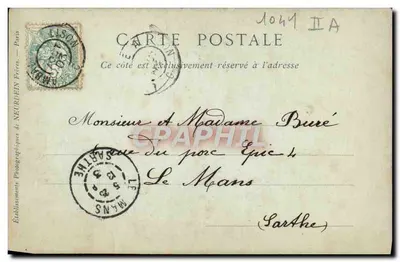 1041 II A
CARTE POSTALE
Ce côté est exclusivement réservé à l'adresse
Monsieur et Madame Buré
rue du porc Epic 4
Le Mans
Sarthe
LE MANS
SARTHE
Etablissements Photographiques de NEURDEIN Frères. — Paris
SPARTHIL